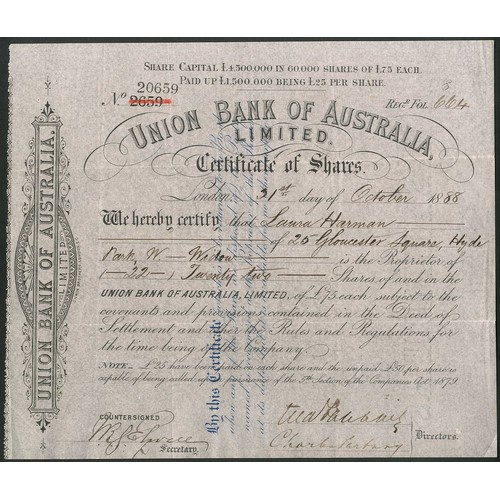 SHARE CAPITAL £4,500,000 IN 60,000 SHARES OF £75 EACH.
PAID UP £1,500,000 BEING £25 PER SHARE.
20659
No. 2659
REGD. FOL. 664
UNION BANK OF AUSTRALIA,
LIMITED.
Certificate of Shares.
London, 31st day of October 1888
We hereby certify that Laura Harman
of 25 Gloucester Square, Hyde
Park, W. Widow is the Proprietor of
(22) Twenty two Shares of and in the
UNION BANK OF AUSTRALIA, LIMITED, of £75 each subject to the
covenants and provisions contained in the Deed of
Settlement and other the Rules and Regulations for
the time being of the Company.
NOTE.— £25 have been paid on each share and the unpaid £50 per share is
capable of being called up in pursuance of the 5th Section of the Companies Act 1879
COUNTERSIGNED
Secretary.
Directors.
UNION BANK OF AUSTRALIA,
LIMITED.
By this Certificate